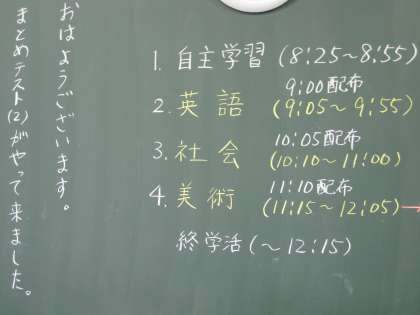 おはようございます。
まとめテスト(2)がやって来ました。
1. 自主学習 (8:25～8:55)
9:00配布
2. 英語 (9:05～9:55)
10:05配布
3. 社会 (10:10～11:00)
11:10配布
4. 美術 (11:15～12:05)
終学活 (～12:15)